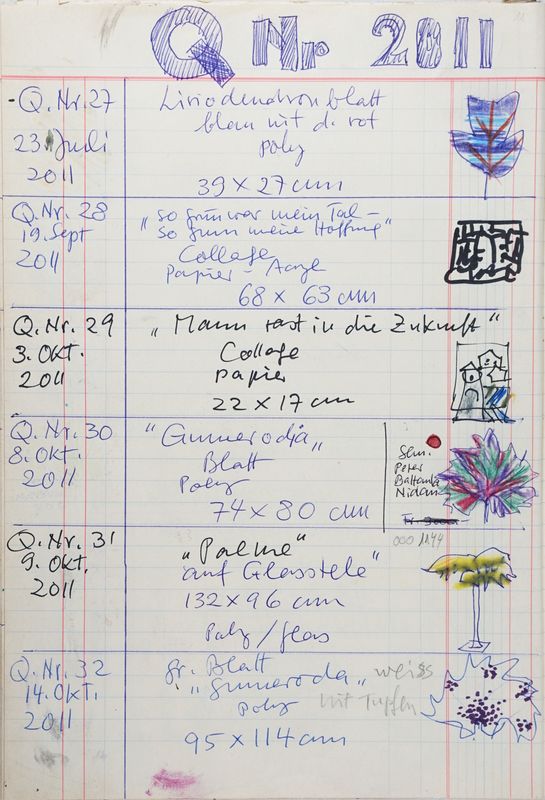 Q Nr 2011
Q.Nr.27
23. Juli
2011
Liriodendronblatt
blau mit d. rot
Poly
39 x 27 cm
Q.Nr. 28
19. Sept
2011
„so grün war mein Tal –
so grün meine Hoffnung"
Collage
Papier – Acryl
68 x 63 cm
Q.Nr. 29
3. Okt.
2011
„Mann rast in die Zukunft"
Collage
Papier
22 x 17 cm
Q.Nr. 30
8. Okt.
2011
"Gunnerodja„
Blatt
Poly
74 x 80 cm
Peter
Nidau
000 1144
Q.Nr. 31
9. Okt.
2011
„Palme"
auf Glasstele"
132 x 96 cm
Poly / glas
Q.Nr. 32
14. Okt.
2011
gr. Blatt
„Gunneroda" weiss
Poly mit Tupfen
95 x 114 cm